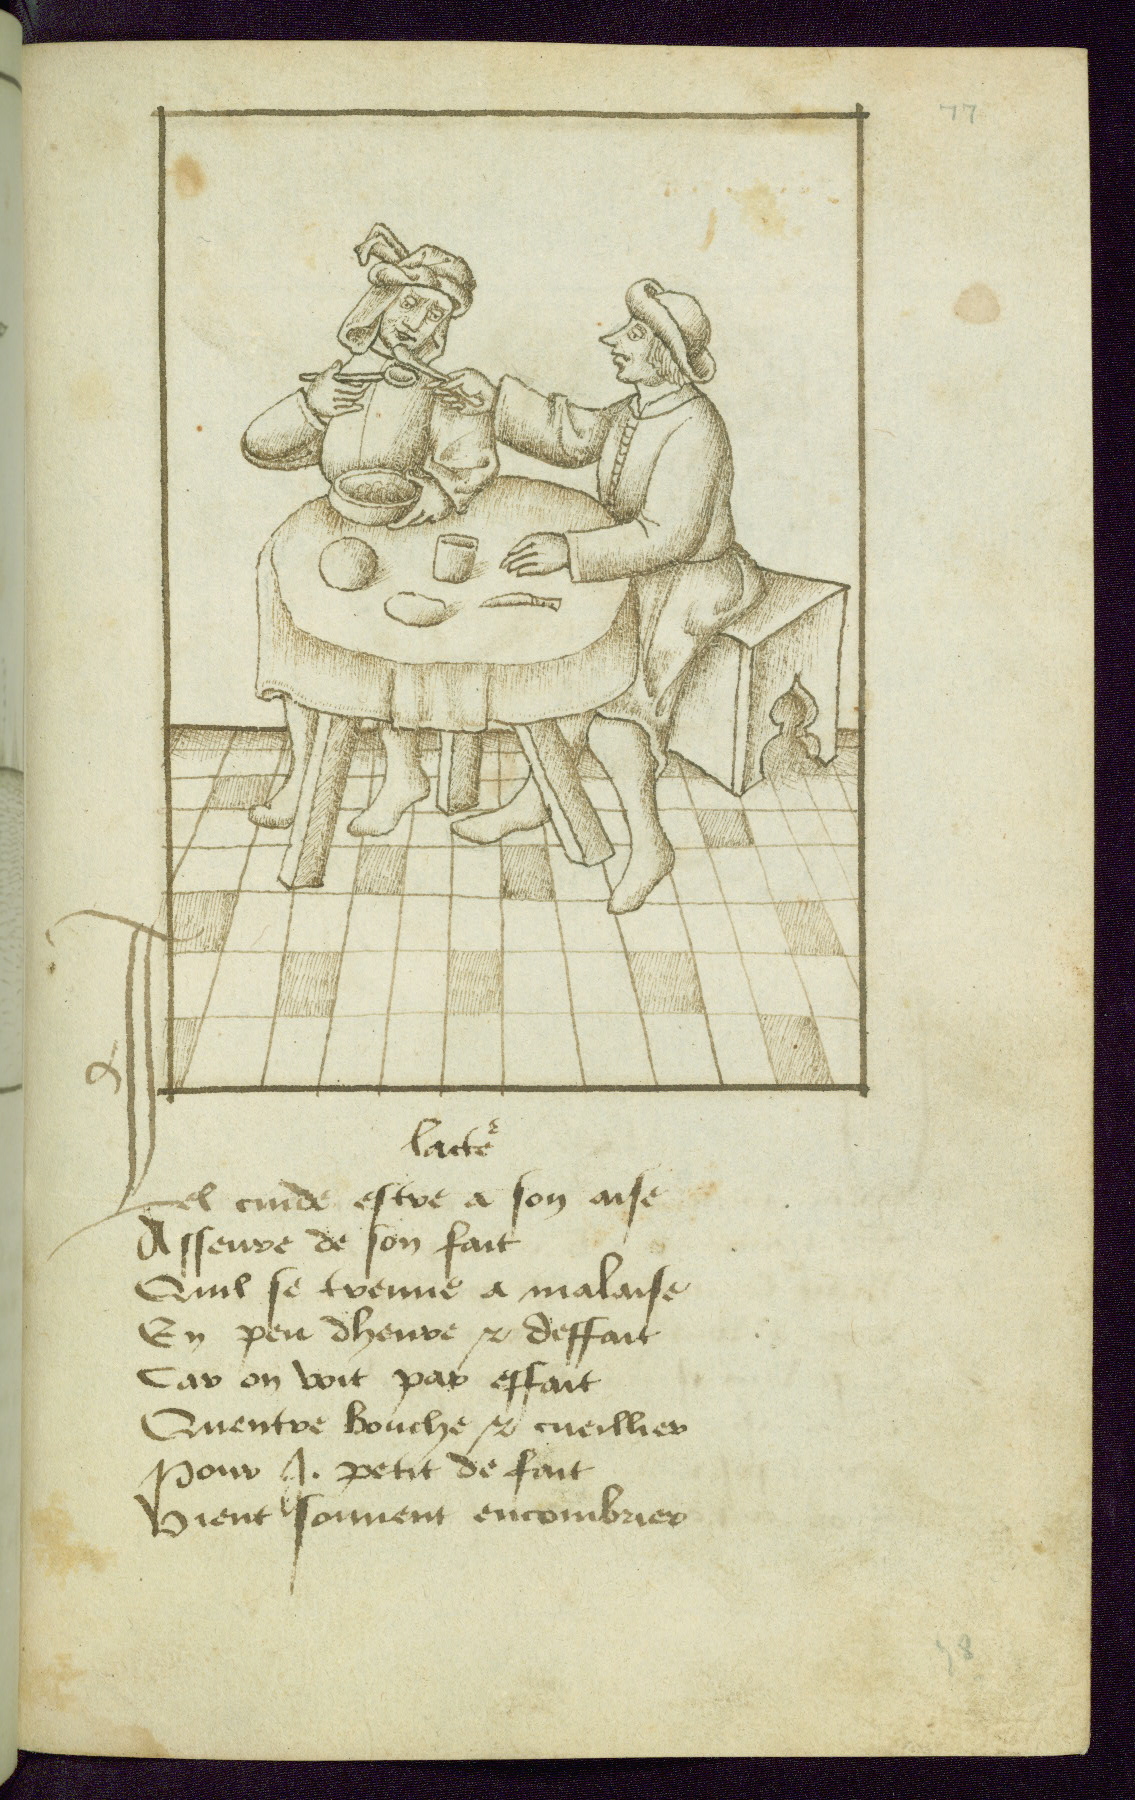 77
lacteur
Tel cuide estre a son aise
Asseure de son fait
Quil se treuue a malaise
En peu dheure & deffait
Car on voit par effait
Quentre bouche & cueillier
Pour .I. petit de fait
Vient souuent encombrier